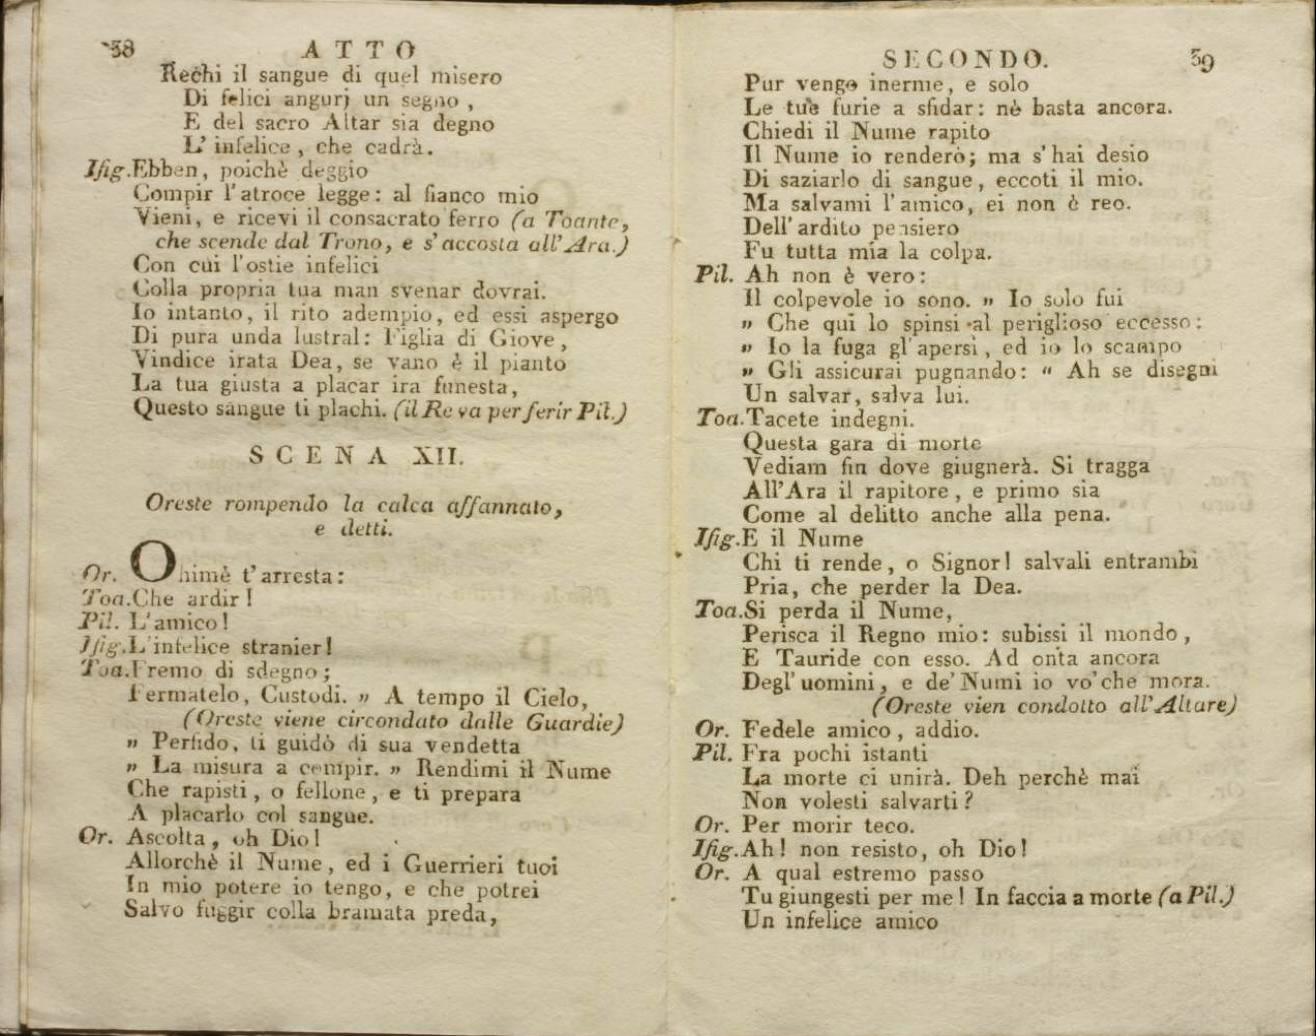 38 ATTO
Rechi il sangue di quel misero
Di felici augurj un segno,
E del sacro Altar sia degno
L' infelice, che cadrà.
Ifig. Ebben, poichè deggio
Compir l'atroce legge: al fianco mio
Vieni, e ricevi il consacrato ferro (a Toante,
che scende dal Trono, e s'accosta all'Ara.)
Con cui l'ostie infelici
Colla propria tua man svenar dovrai.
Io intanto, il rito adempio, ed essi aspergo
Di pura unda lustral: Figlia di Giove,
Vindice irata Dea, se vano è il pianto
La tua giusta a placar ira funesta,
Questo sangue ti plachi. (il Re va per ferir Pil.)
SCENA XII.
Oreste rompendo la calca affannato,
e detti.
Or. Ohimè t'arresta:
Toa. Che ardir!
Pil. L'amico!
Ifig. L'infelice stranier!
Toa. Fremo di sdegno;
Fermatelo, Custodi. „ A tempo il Cielo,
(Oreste viene circondato dalle Guardie)
„ Perfido, ti guidò di sua vendetta
„ La misura a compir. „ Rendimi il Nume
Che rapisti, o fellone, e ti prepara
A placarlo col sangue.
Or. Ascolta, oh Dio!
Allorchè il Nume, ed i Guerrieri tuoi
In mio potere io tengo, e che potrei
Salvo fuggir colla bramata preda,
SECONDO. 39
Pur vengo inerme, e solo
Le tue furie a sfidar: nè basta ancora.
Chiedi il Nume rapito
Il Nume io renderò; ma s'hai desio
Di saziarlo di sangue, eccoti il mio.
Ma salvami l'amico, ei non è reo.
Dell'ardito pensiero
Fu tutta mia la colpa.
Pil. Ah non è vero:
Il colpevole io sono. „ Io solo fui
„ Che qui lo spinsi al periglioso eccesso:
„ Io la fuga gl'apersi, ed io lo scampo
„ Gli assicurai pugnando: “ Ah se disegni
Un salvar, salva lui.
Toa. Tacete indegni.
Questa gara di morte
Vediam fin dove giugnerà. Si tragga
All'Ara il rapitore, e primo sia
Come al delitto anche alla pena.
Ifig. E il Nume
Chi ti rende, o Signor! salvali entrambi
Pria, che perder la Dea.
Toa. Si perda il Nume,
Perisca il Regno mio: subissi il mondo,
E Tauride con esso. Ad onta ancora
Degl'uomini, e de'Numi io vo'che mora.
(Oreste vien condotto all'Altare)
Or. Fedele amico, addio.
Pil. Fra pochi istanti
La morte ci unirà. Deh perchè mai
Non volesti salvarti?
Or. Per morir teco.
Ifig. Ah! non resisto, oh Dio!
Or. A qual estremo passo
Tu giungesti per me! In faccia a morte (a Pil.)
Un infelice amico